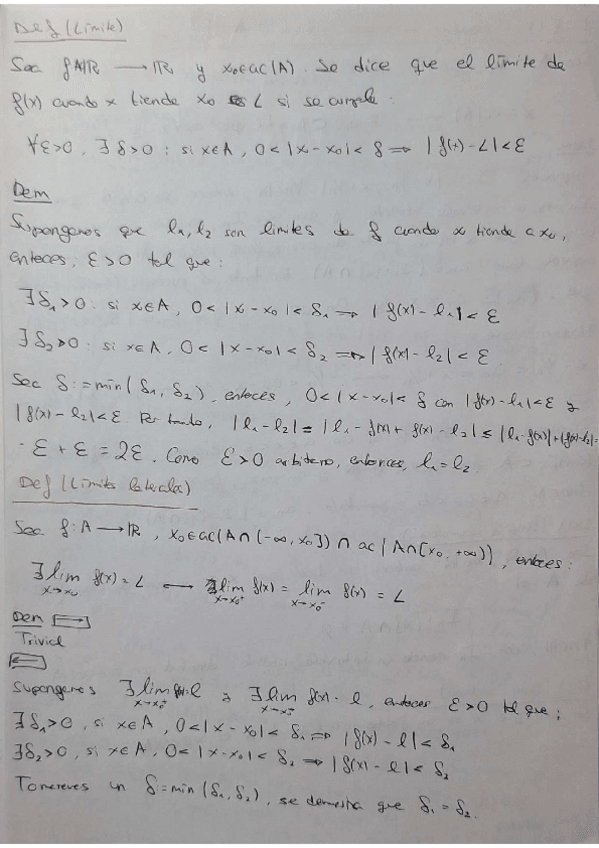 Def (Límite)
Sea f: A/R → IR y x₀ ∈ ac(A). Se dice que el límite de
f(x) cuando x tiende x₀ es L si se cumple:
∀ε>0, ∃ δ>0 : si x∈A, 0<|x-x₀|<δ ⇒ |f(x)-L|<ε
Dem
Supongamos que l₁, l₂ son limites de f cuando x tiende a x₀,
entonces, ε>0 tal que:
∃ δ₁>0 : si x∈A, 0<|x-x₀|<δ₁ ⇒ |f(x)-l₁|<ε
∃ δ₂>0 : si x∈A, 0<|x-x₀|<δ₂ ⇒ |f(x)-l₂|<ε
Sea δ:=min(δ₁, δ₂), entonces, 0<|x-x₀|<δ con |f(x)-l₁|<ε y
|f(x)-l₂|<ε. Por tanto, |l₁-l₂| = |l₁-f(x)+f(x)-l₂| ≤ |l₁-f(x)|+|f(x)-l₂|=
= ε+ε = 2ε. Como ε>0 arbitrario, entonces, l₁=l₂
Def (Límites laterales)
Sea f: A → IR, x₀∈ac(A∩(-∞, x₀]) ∩ ac(A∩[x₀, +∞)), entonces:
∃ lim x→x₀ f(x) = L ⟷ ∃ lim x→x₀⁺ f(x) = lim x→x₀⁻ f(x) = L
Dem ⟹
Trivial
⟸
Supongamos ∃ lim x→x₀⁺ f(x)=l y ∃ lim x→x₀⁻ f(x)=l, entonces ε>0 tal que:
∃ δ₁>0, si x∈A, 0<|x-x₀|<δ₁ ⇒ |f(x)-l|<δ₁
∃ δ₂>0, si x∈A, 0<|x-x₀|<δ₂ ⇒ |f(x)-l|<δ₂
Tomemos un δ=min(δ₁, δ₂), se demuestra que δ₁=δ₂.